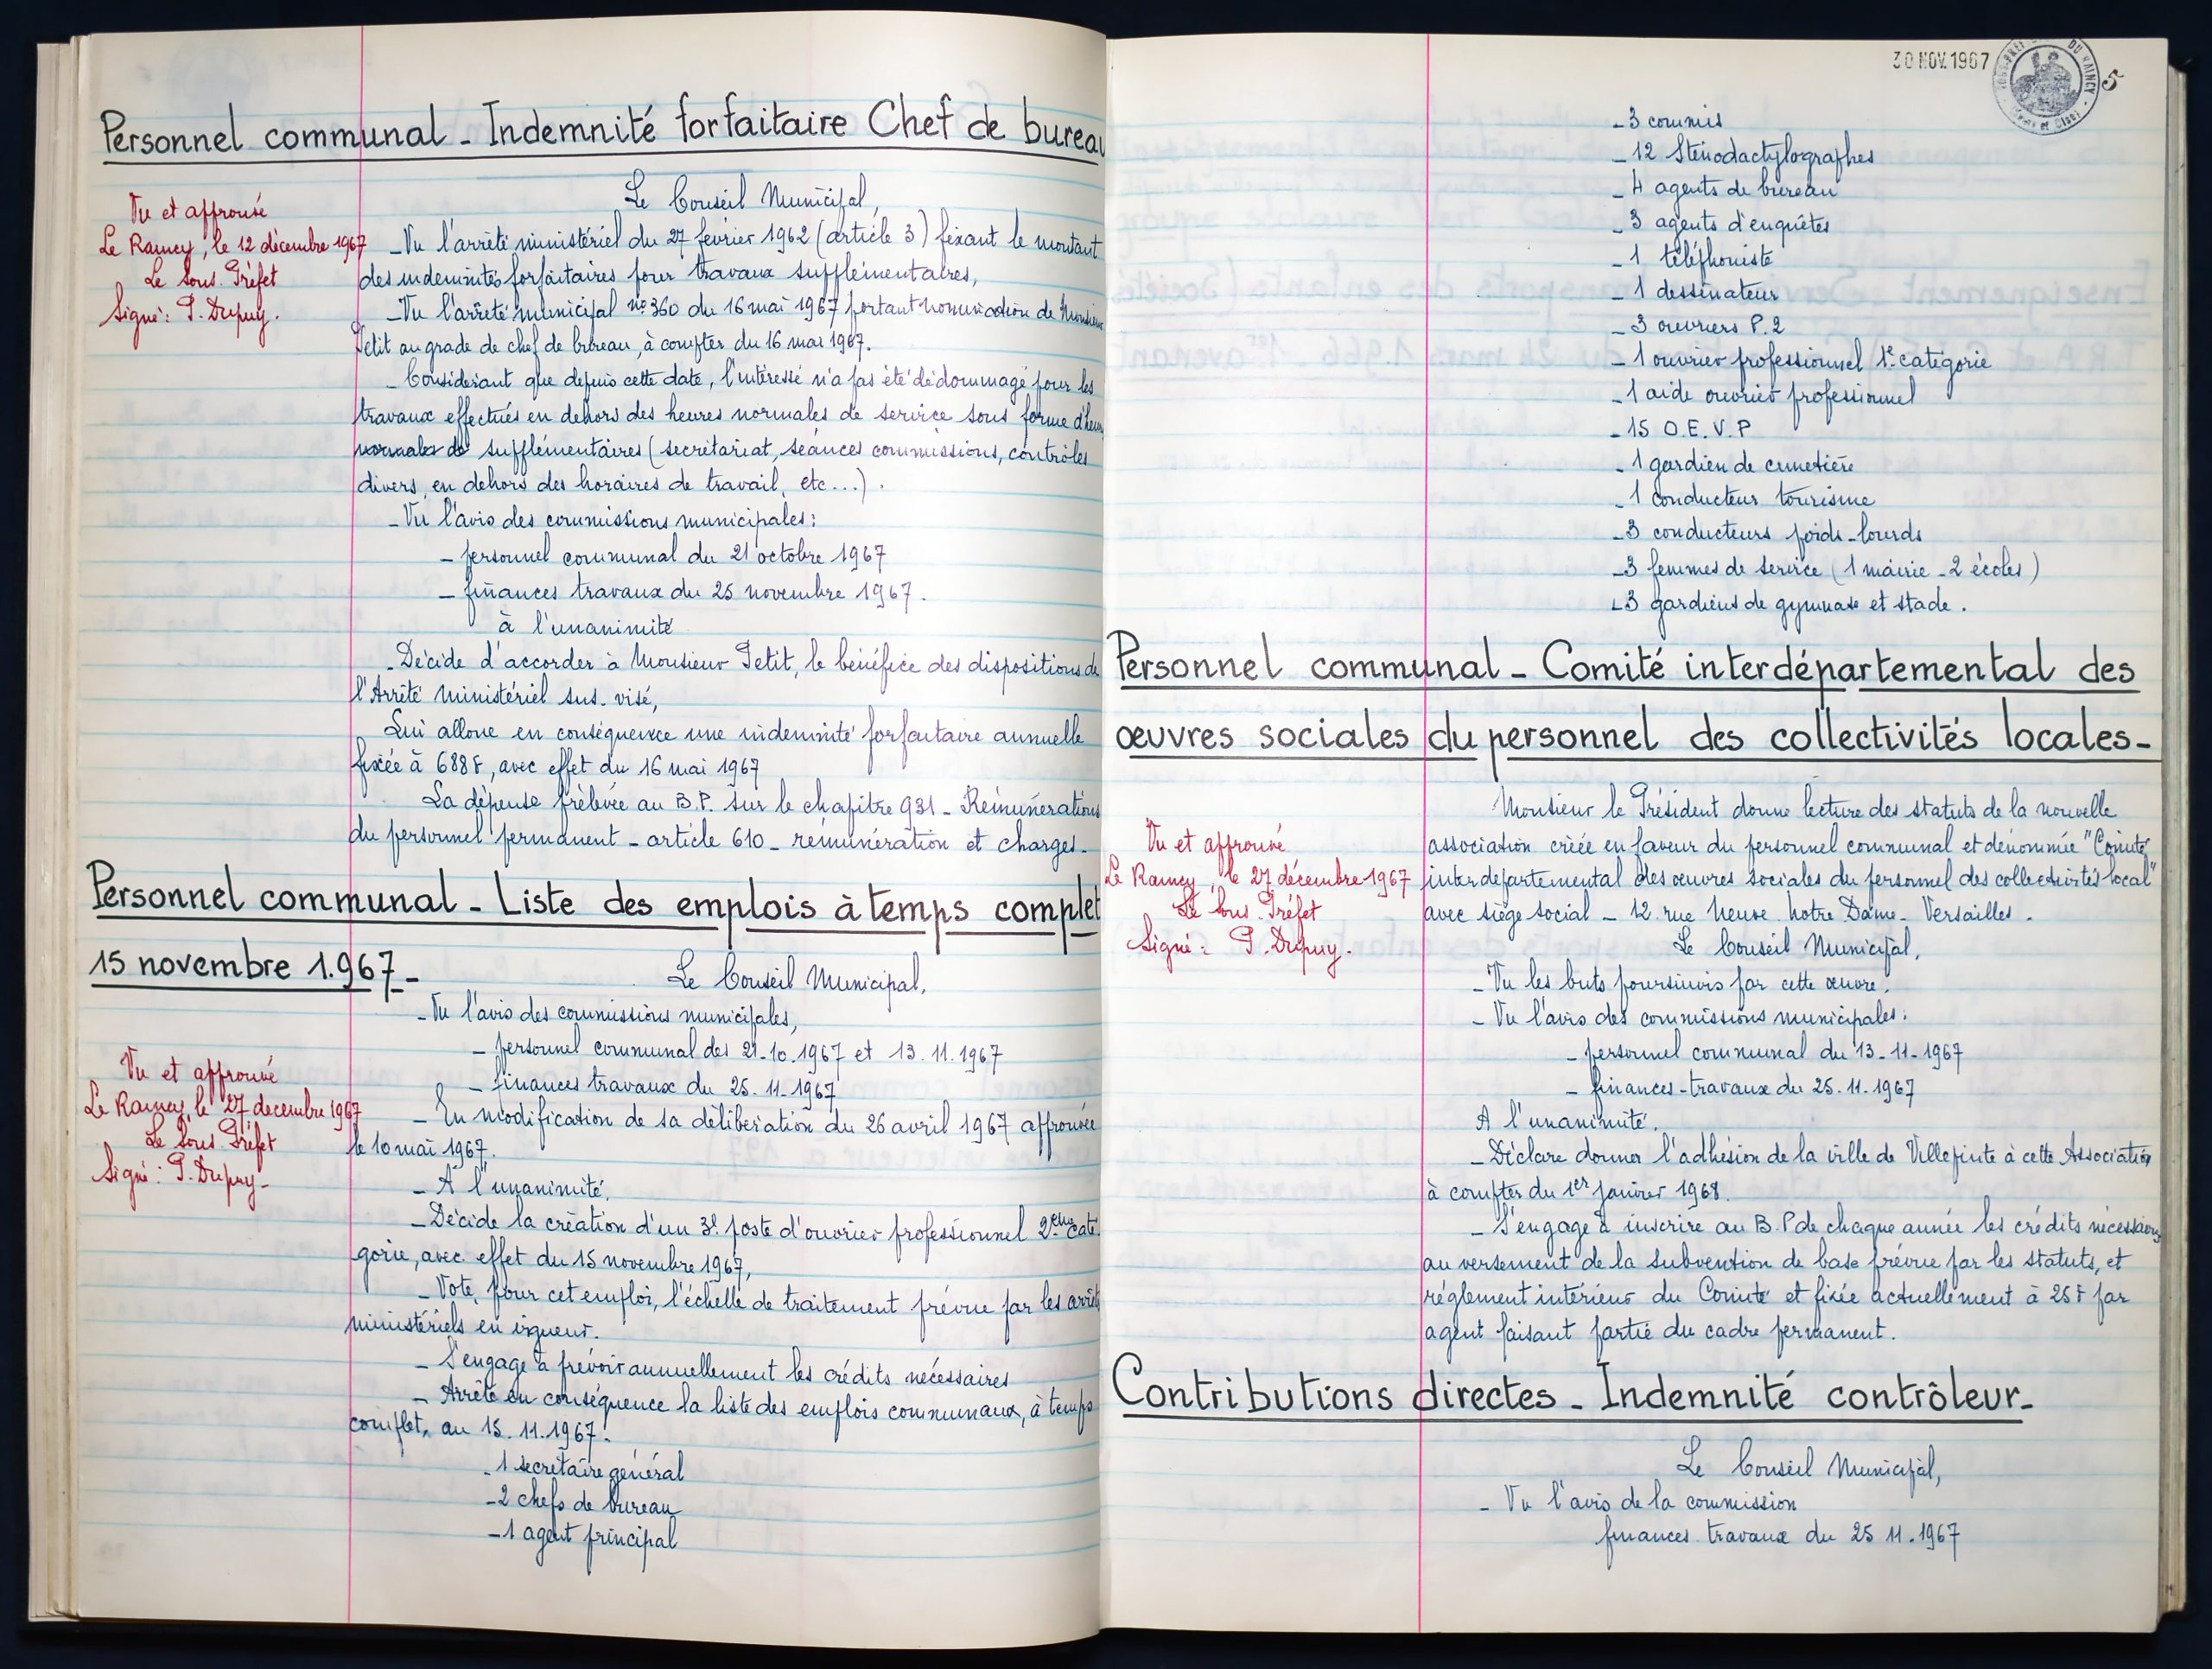 Personnel communal - Indemnité forfaitaire Chef de bureau
Vu et approuvé
Le Raincy, le 12 décembre 1967
Le Sous-Préfet
Signé : P. Dupuy.
Le Conseil Municipal,
- Vu l'arrêté ministériel du 27 février 1962 (article 3) fixant le montant
des indemnités forfaitaires pour travaux supplémentaires,
- Vu l'arrêté municipal n° 360 du 16 mai 1967 portant nomination de Monsieur
Petit au grade de chef de bureau, à compter du 16 mai 1967.
- Considérant que depuis cette date, l'intéressé n'a pas été dédommagé pour les
travaux effectués en dehors des heures normales de service sous forme d'heures
normales de supplémentaires (secrétariat, séances commissions, contrôles
divers, en dehors des horaires de travail, etc...).
- Vu l'avis des commissions municipales :
- personnel communal du 21 octobre 1967
- finances travaux du 25 novembre 1967.
à l'unanimité
- Décide d'accorder à Monsieur Petit, le bénéfice des dispositions de
l'Arrêté ministériel sus-visé,
Lui alloue en conséquence une indemnité forfaitaire annuelle
fixée à 688 F, avec effet du 16 mai 1967
La dépense prélevée au B.P. sur le chapitre 931 - Rémunérations
du personnel permanent - article 610 - rémunération et charges.
Personnel communal - Liste des emplois à temps complet
15 novembre 1.967 -
Vu et approuvé
Le Raincy, le 27 décembre 1967
Le Sous-Préfet
Signé : P. Dupuy -
Le Conseil Municipal,
- Vu l'avis des commissions municipales,
- personnel communal des 21-10.1967 et 13.11.1967
- finances travaux du 25.11.1967
- En modification de sa délibération du 26 avril 1967 approuvée
le 10 mai 1967.
- A l'unanimité,
- Décide la création d'un 3e poste d'ouvrier professionnel 2ème caté-
gorie, avec effet du 15 novembre 1967,
- Vote, pour cet emploi, l'échelle de traitement prévue par les arrêtés
ministériels en vigueur.
- S'engage à prévoir annuellement les crédits nécessaires
- Arrête en conséquence la liste des emplois communaux, à temps
complet, au 15.11.1967 :
- 1 secrétaire général
- 2 chefs de bureau
- 1 agent principal
30 NOV. 1967
SOUS-PRÉFECTURE DU RAINCY
Seine et Oise
5
- 3 commis
- 12 Sténodactylographes
- 4 agents de bureau
- 3 agents d'enquêtes
- 1 téléphoniste
- 1 dessinateur
- 3 ouvriers P.2
- 1 ouvrier professionnel 1e catégorie
- 1 aide ouvrier professionnel
- 15 O.E.V.P
- 1 gardien de cimetière
- 1 conducteur tourisme
- 3 conducteurs poids-lourds
- 3 femmes de service (1 mairie - 2 écoles)
- 3 gardiens de gymnase et stade.
Personnel communal - Comité interdépartemental des
œuvres sociales du personnel des collectivités locales -
Vu et approuvé
Le Raincy, le 27 décembre 1967
Le Sous-Préfet
Signé : P. Dupuy.
Monsieur le Président donne lecture des statuts de la nouvelle
association créée en faveur du personnel communal et dénommée "Comité
interdépartemental des œuvres sociales du personnel des collectivités local"
avec siège social - 12 rue Neuve Notre Dame - Versailles.
Le Conseil Municipal,
- Vu les buts poursuivis par cette œuvre.
- Vu l'avis des commissions municipales :
- personnel communal du 13-11-1967
- finances-travaux du 25.11.1967
A l'unanimité.
- Déclare donner l'adhésion de la ville de Villepinte à cette Association
à compter du 1er janvier 1968.
- S'engage à inscrire au B.P de chaque année les crédits nécessaires
au versement de la subvention de base prévue par les statuts, et
réglement intérieur du Comité et fixée actuellement à 25 F par
agent faisant partie du cadre permanent.
Contributions directes - Indemnité contrôleur -
Le Conseil Municipal,
- Vu l'avis de la commission
finances-travaux du 25 11.1967